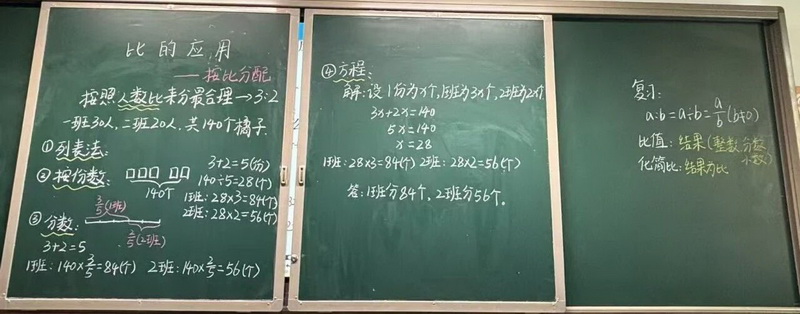 比的应用
——按比分配
按照人数比来分最合理→3:2
一班30人,二班20人,共140个橘子.
①列表法:
②按份数:
140个
3+2=5(份)
140÷5=28(个)
1班:28×3=84(个)
2班:28×2=56(个)
③分数:
3/5(1班)
2/5(2班)
3+2=5
1班:140×3/5=84(个) 2班:140×2/5=56(个)
④方程:
解:设1份为x个,1班为3x个,2班为2x个
3x+2x=140
5x=140
x=28
1班:28×3=84(个) 2班:28×2=56(个)
答:1班分84个,2班分56个.
复习:
a:b=a÷b=a/b(b≠0)
比值:结果(整数,分数
小数)
化简比:结果为比